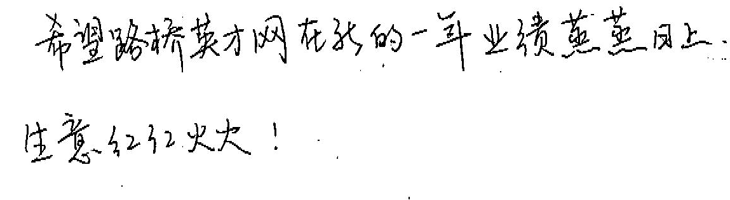 希望路桥英才网在新的一年业绩蒸蒸日上.
生意红红火火！